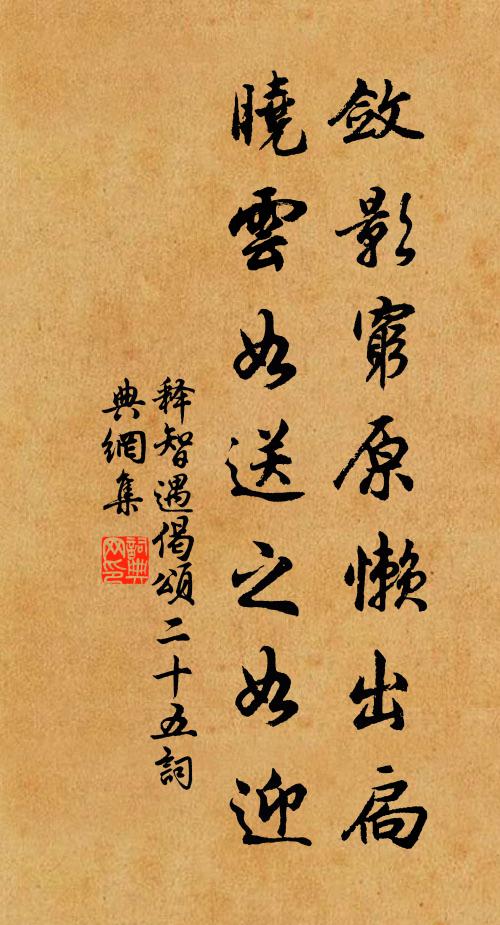 斂影窮原懶出扃
曉雲如送之如迎
释智遇偈頌二十五詞
典網集
詞典
网印